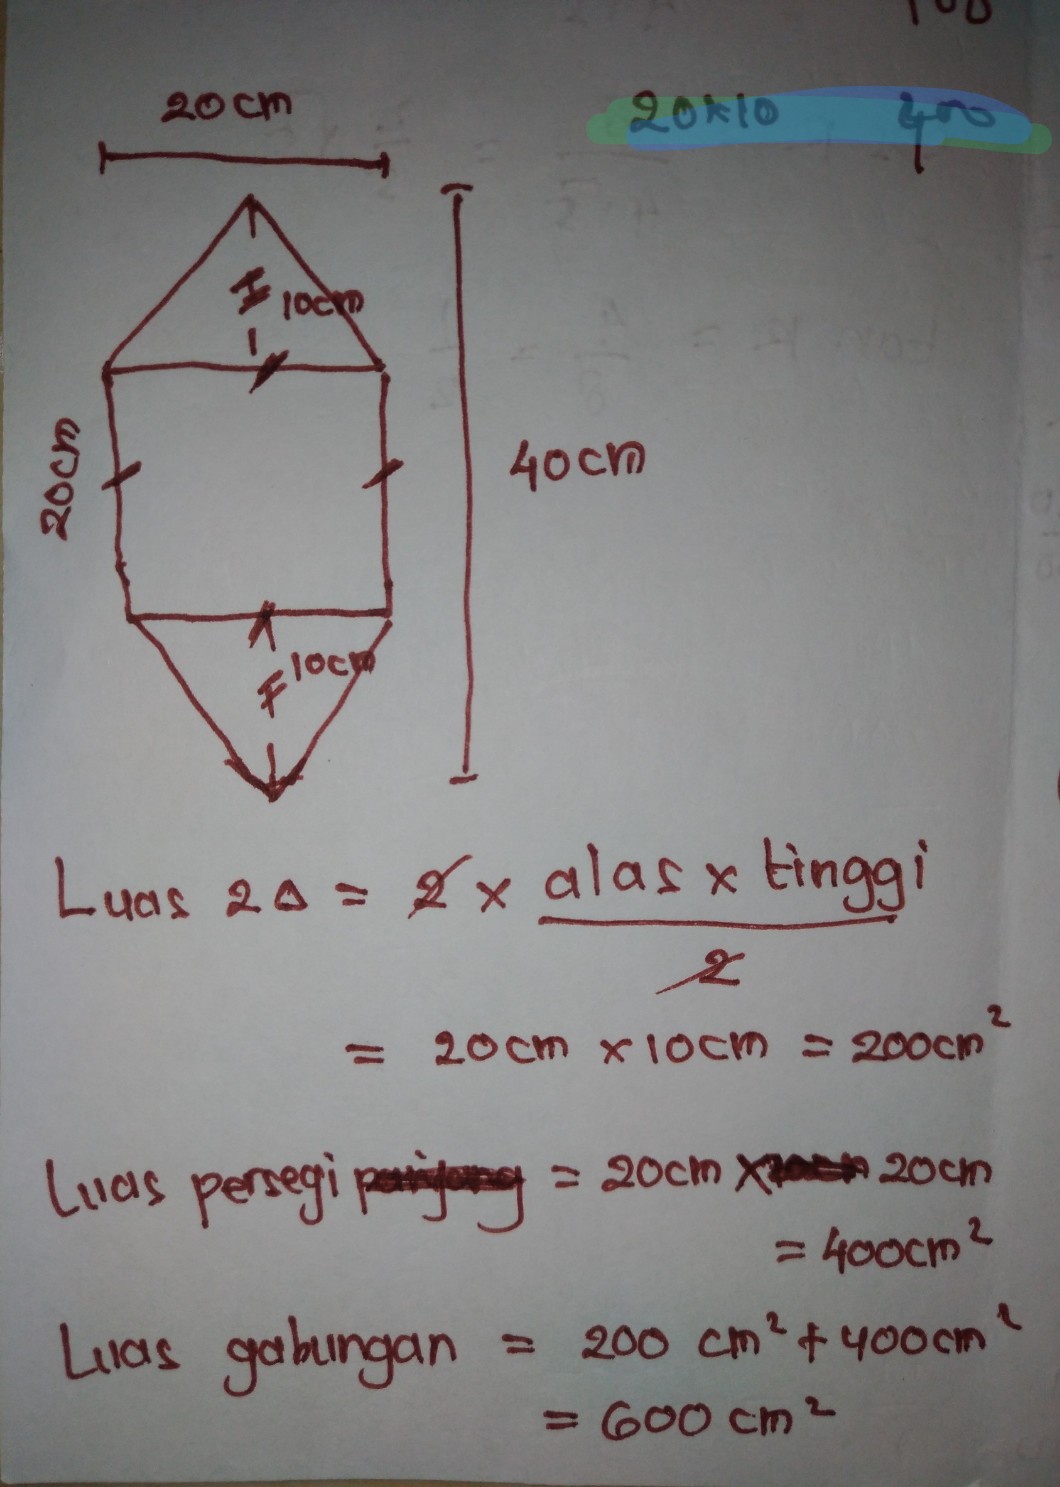 20cm
20x10 400
10cm
20cm
40cm
10cm
Luas 2Δ = 2 x alas x tinggi
2
= 20cm x 10cm = 200cm²
Luas persegi = 20cm x 20cm
= 400cm²
Luas gabungan = 200 cm² + 400cm²
= 600 cm²